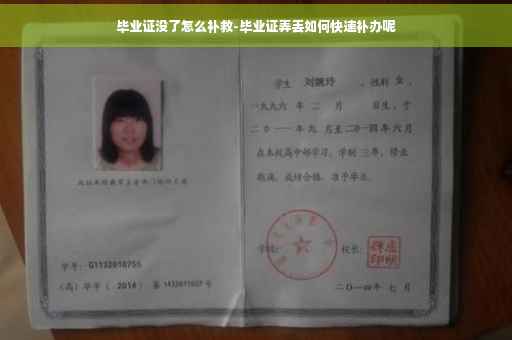 毕业证没了怎么补救-毕业证弄丢如何快速补办呢
学生 刘婉玲 ，性别 女 ，
一九九六 年 二 月 日生，于
二〇一一年九 月至二〇一四年 六月
在本校高中部学习，学制 三年，修业
期满，成绩合格，准予毕业。
学校：
校长：
学号：G1132010755
（高）毕字（ 2014 ）第 1432011027 号
二〇一四年 七 月